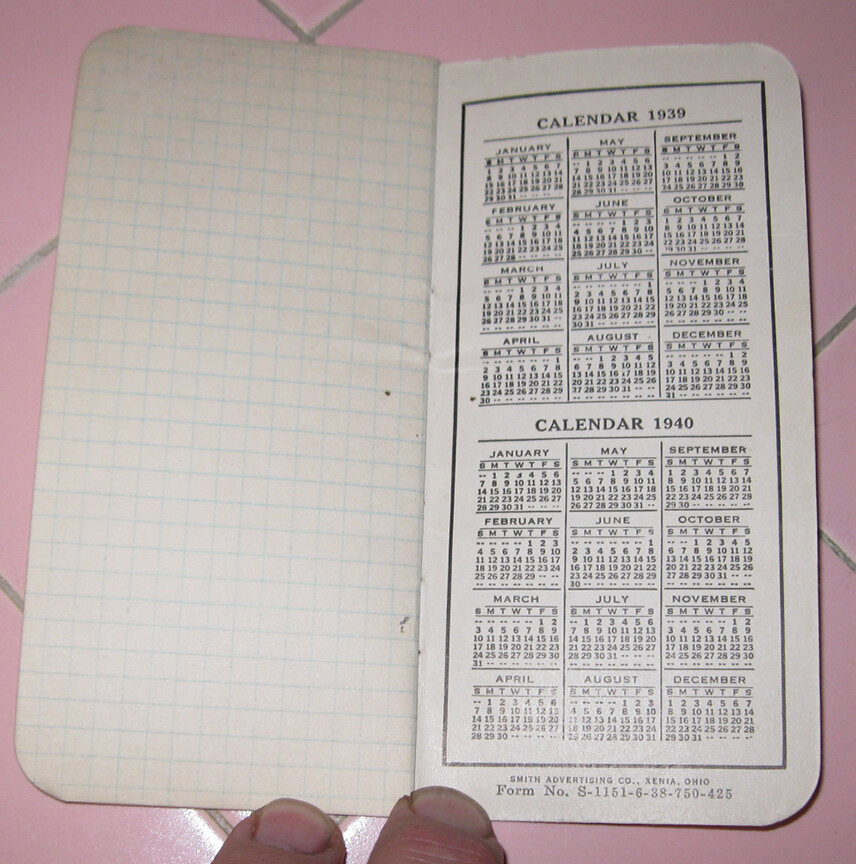 CALENDAR 1939
JANUARY
S M T W T F S
1 2 3 4 5 6 7
8 9 10 11 12 13 14
15 16 17 18 19 20 21
22 23 24 25 26 27 28
29 30 31 -- -- -- --
FEBRUARY
S M T W T F S
-- -- -- 1 2 3 4
5 6 7 8 9 10 11
12 13 14 15 16 17 18
19 20 21 22 23 24 25
26 27 28 -- -- -- --
MARCH
S M T W T F S
-- -- -- 1 2 3 4
5 6 7 8 9 10 11
12 13 14 15 16 17 18
19 20 21 22 23 24 25
26 27 28 29 30 31 --
APRIL
S M T W T F S
-- -- -- -- -- -- 1
2 3 4 5 6 7 8
9 10 11 12 13 14 15
16 17 18 19 20 21 22
23 24 25 26 27 28 29
30 -- -- -- -- -- --
MAY
S M T W T F S
-- 1 2 3 4 5 6
7 8 9 10 11 12 13
14 15 16 17 18 19 20
21 22 23 24 25 26 27
28 29 30 31 -- -- --
JUNE
S M T W T F S
-- -- -- -- 1 2 3
4 5 6 7 8 9 10
11 12 13 14 15 16 17
18 19 20 21 22 23 24
25 26 27 28 29 30 --
JULY
S M T W T F S
-- -- -- -- -- -- 1
2 3 4 5 6 7 8
9 10 11 12 13 14 15
16 17 18 19 20 21 22
23 24 25 26 27 28 29
30 31 -- -- -- -- --
AUGUST
S M T W T F S
-- -- 1 2 3 4 5
6 7 8 9 10 11 12
13 14 15 16 17 18 19
20 21 22 23 24 25 26
27 28 29 30 31 -- --
SEPTEMBER
S M T W T F S
-- -- -- -- -- 1 2
3 4 5 6 7 8 9
10 11 12 13 14 15 16
17 18 19 20 21 22 23
24 25 26 27 28 29 30
OCTOBER
S M T W T F S
1 2 3 4 5 6 7
8 9 10 11 12 13 14
15 16 17 18 19 20 21
22 23 24 25 26 27 28
29 30 31 -- -- -- --
NOVEMBER
S M T W T F S
-- -- -- 1 2 3 4
5 6 7 8 9 10 11
12 13 14 15 16 17 18
19 20 21 22 23 24 25
26 27 28 29 30 -- --
DECEMBER
S M T W T F S
-- -- -- -- -- 1 2
3 4 5 6 7 8 9
10 11 12 13 14 15 16
17 18 19 20 21 22 23
24 25 26 27 28 29 30
31 -- -- -- -- -- --
CALENDAR 1940
JANUARY
S M T W T F S
-- 1 2 3 4 5 6
7 8 9 10 11 12 13
14 15 16 17 18 19 20
21 22 23 24 25 26 27
28 29 30 31 -- -- --
FEBRUARY
S M T W T F S
-- -- -- -- 1 2 3
4 5 6 7 8 9 10
11 12 13 14 15 16 17
18 19 20 21 22 23 24
25 26 27 28 29 -- --
MARCH
S M T W T F S
-- -- -- -- -- 1 2
3 4 5 6 7 8 9
10 11 12 13 14 15 16
17 18 19 20 21 22 23
24 25 26 27 28 29 30
31 -- -- -- -- -- --
APRIL
S M T W T F S
-- 1 2 3 4 5 6
7 8 9 10 11 12 13
14 15 16 17 18 19 20
21 22 23 24 25 26 27
28 29 30 -- -- -- --
MAY
S M T W T F S
-- -- -- 1 2 3 4
5 6 7 8 9 10 11
12 13 14 15 16 17 18
19 20 21 22 23 24 25
26 27 28 29 30 31 --
JUNE
S M T W T F S
-- -- -- -- -- -- 1
2 3 4 5 6 7 8
9 10 11 12 13 14 15
16 17 18 19 20 21 22
23 24 25 26 27 28 29
30 -- -- -- -- -- --
JULY
S M T W T F S
-- 1 2 3 4 5 6
7 8 9 10 11 12 13
14 15 16 17 18 19 20
21 22 23 24 25 26 27
28 29 30 31 -- -- --
AUGUST
S M T W T F S
-- -- -- -- 1 2 3
4 5 6 7 8 9 10
11 12 13 14 15 16 17
18 19 20 21 22 23 24
25 26 27 28 29 30 31
SEPTEMBER
S M T W T F S
1 2 3 4 5 6 7
8 9 10 11 12 13 14
15 16 17 18 19 20 21
22 23 24 25 26 27 28
29 30 -- -- -- -- --
OCTOBER
S M T W T F S
-- -- 1 2 3 4 5
6 7 8 9 10 11 12
13 14 15 16 17 18 19
20 21 22 23 24 25 26
27 28 29 30 31 -- --
NOVEMBER
S M T W T F S
-- -- -- -- -- 1 2
3 4 5 6 7 8 9
10 11 12 13 14 15 16
17 18 19 20 21 22 23
24 25 26 27 28 29 30
DECEMBER
S M T W T F S
1 2 3 4 5 6 7
8 9 10 11 12 13 14
15 16 17 18 19 20 21
22 23 24 25 26 27 28
29 30 31 -- -- -- --
SMITH ADVERTISING CO., XENIA, OHIO
Form No. S-1151-6-38-750-425